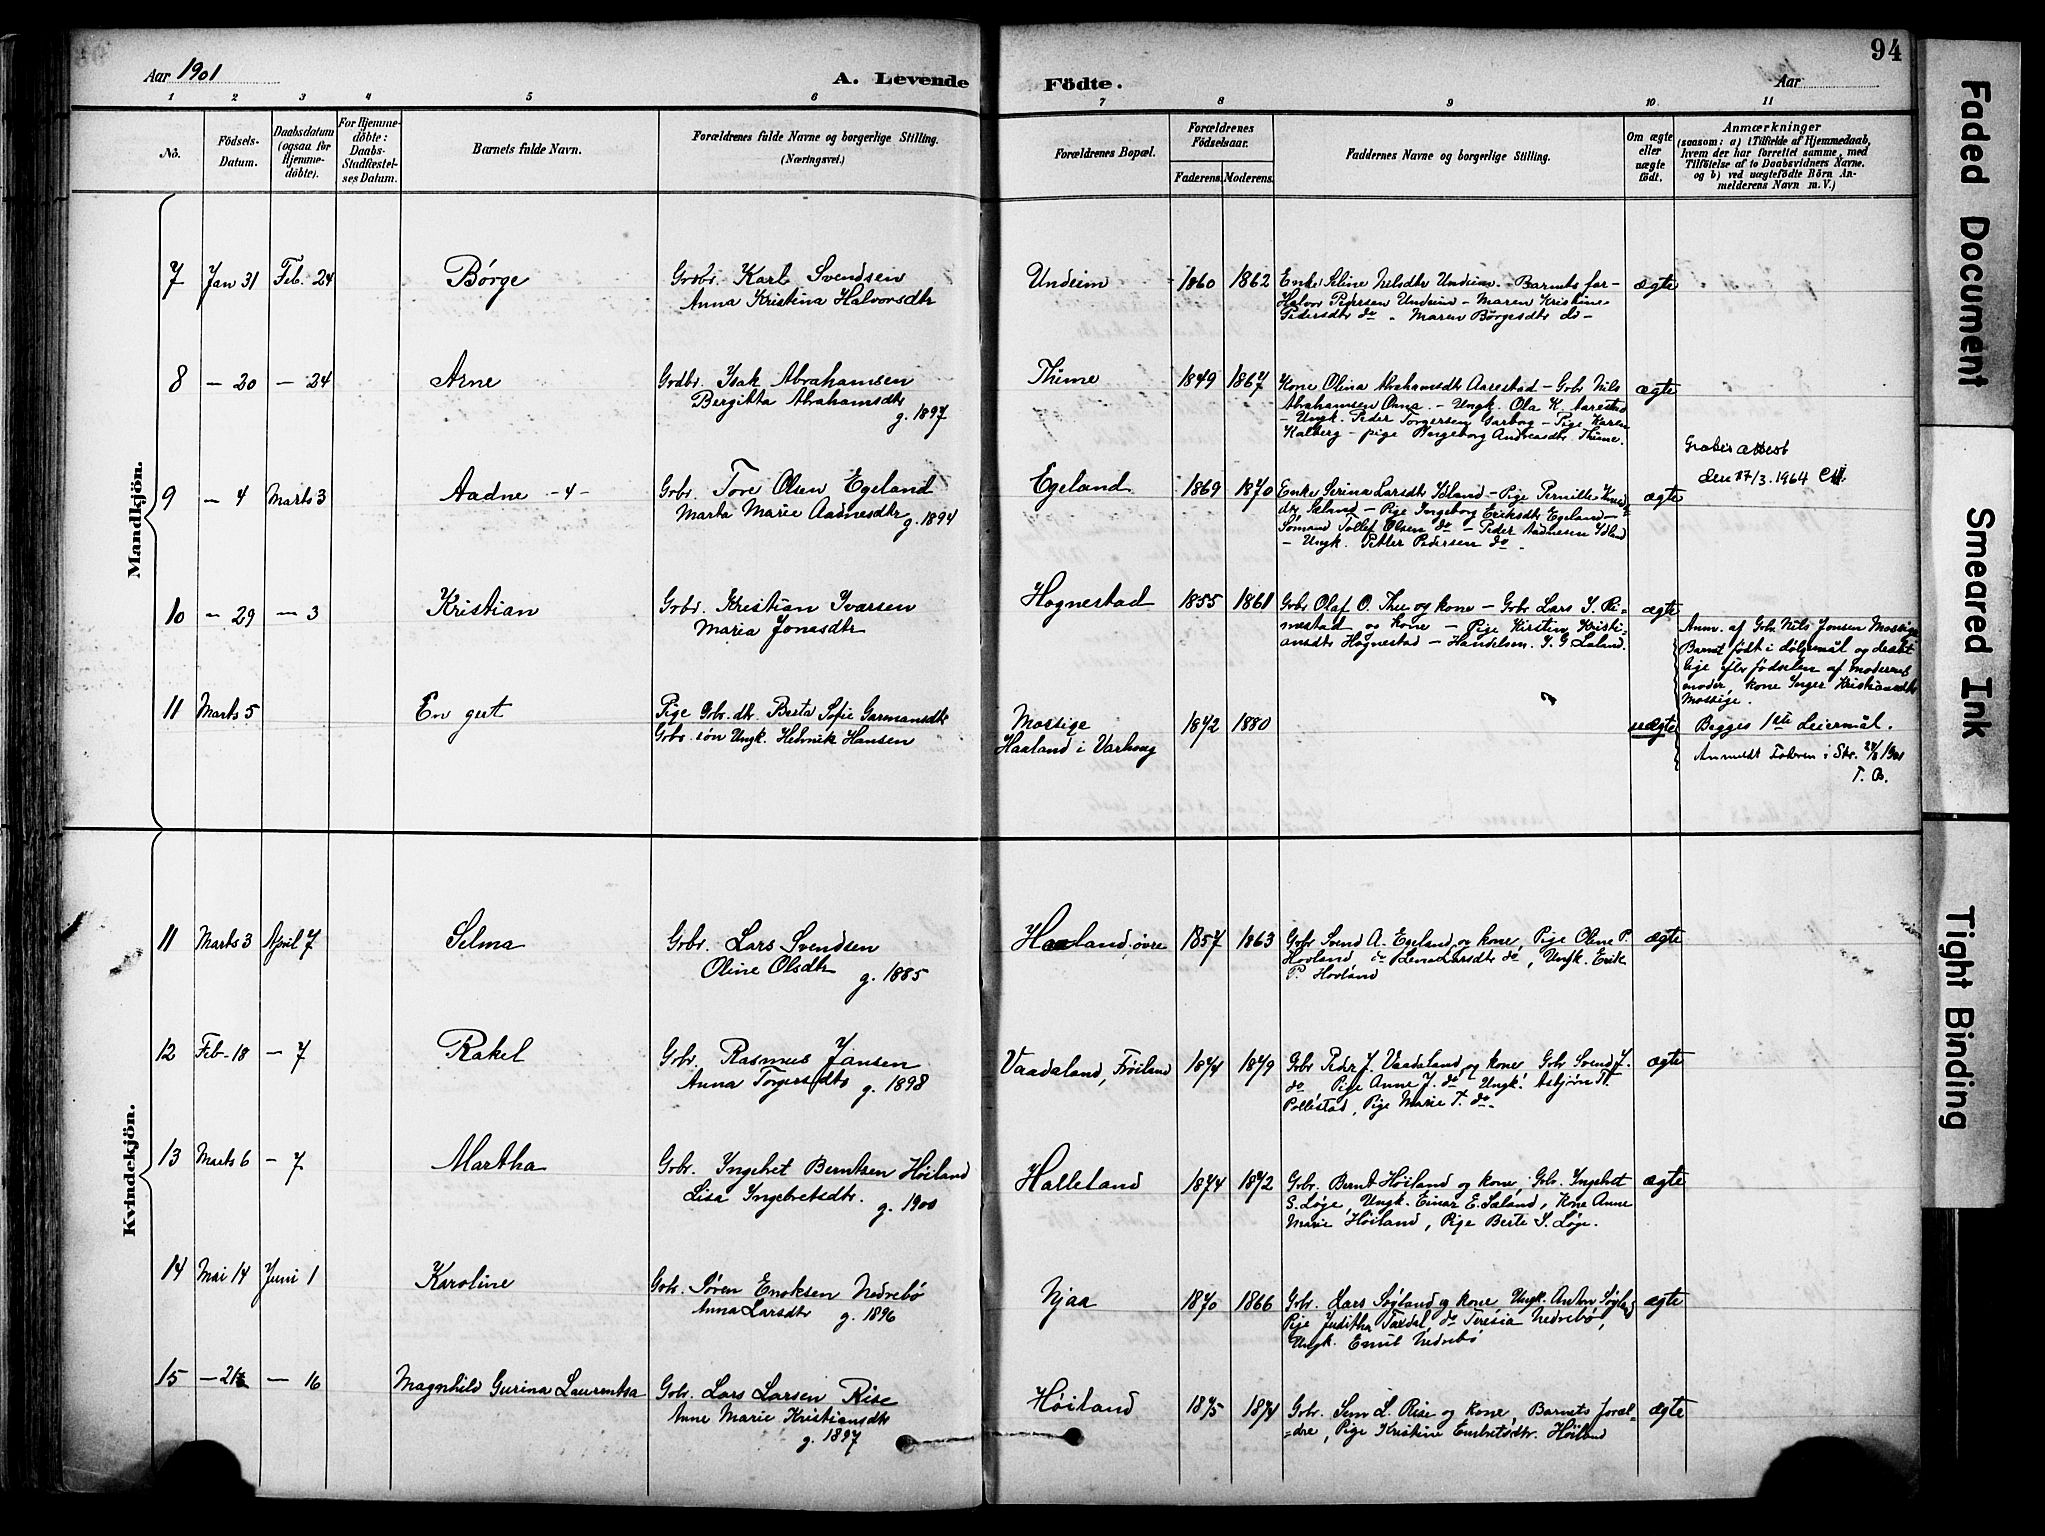 94
Aar 1901
A. Levende Födte.
Aar
1 2 3 4 5 6 7 8 9 10 11
No.
Födsels-Datum.
Daabsdatum (ogsaa for Hjemme-döbte).
For Hjemme-döbte: Daabs-Stadfæstel-ses Datum.
Barnets fulde Navn.
Forældrenes fulde Navne og borgerlige Stilling.
(Næringsvei.)
Forældrenes Bopæl.
Forældrenes Födselsaar.
Faderens. Moderens.
Faddernes Navne og borgerlige Stilling.
Om ægte eller uægte födt.
Anmærkninger
(saasom: a) i Tilfælde af Hjemmedaab,
hvem der har forrettet samme, med
Tilföielse af to Daabsvidners Navne.
og b) ved uægtefödte Börn An-
melderens Navn m. V.)
Mandkjön.
7 Jan 31 Feb. 24 Børge
Grdbr. Karl Svendsen
Anna Kristina Halvorsdtr
Undeim 1860 1862
Enke Seline Nilsdtr Undeim - Barnets far -
Halvor Pedersen Undeim - Maren Kristine
Pedersdtr do - Maren Børgesdtr do -
ægte
8 - 20 - 24 Arne
Grdbr. Isak Abrahamsen
Bergitta Abrahamsdtr
g. 1897
Thime 1849 1867
Kone Olina Abrahamsdtr Aarestad - Gbr Nils
Abrahamsen Onna - Ungk. Ola K. Aarestad
- Ungk. Peder Torgersen Garborg - Pige Karen
Kalberg - pige Ingeborg Andreasdtr Thime.
ægte
9 - 4 Marts 3 Aadne -4-
Grbr. Tore Olsen Egeland
Marta Marie Aadnesdtr g. 1894
Egeland 1869 1870
Enke Serina Larsdtr Idland - Pige Pernille
dtr - Pige Ingeborg Eriksdtr Egeland -
Sømand Tollef Olsen do - Peder Aadnesen Idland
- Ungk. Petter Pedersen do -
ægte
attest
den 17/3. 1964
10 - 29 - 3 Kristian
Grbr. Kristian Ivarsen
Maria Jonasdtr
Hognestad 1855 1861
Gbr Olaf O. Thu og kone - Gbr Lars S. Ri-
mestad og kone - Pige Kirstine Kristi-
ansdtr Hognestad - Handelsm. S. G. Laland.
ægte
11 Marts 5 En gut
Pige Gbr. dtr. Berta Sofie Garmansdtr
Gbr. søn Ungk. Henrik Hansen
Mossige
Haaland i Varhoug
1872 1880
uægte
Anm. af Gbr. Nils Jonsen Mossige
Barnet født i dølgsmål og dræbt
lige efter fødselen af moderens
moder, kone Inger Kristiansdtr
Mossige.
Begges 1ste Leiermål.
Anmeldt Fodren i Str. 28/8 1901
T. B.
Kvindekjön.
11 Marts 3 April 7 Selma
Grbr. Lars Svendsen
Oline Olsdtr
g. 1885
Haaland, øvre 1857 1863
Gbr Svend A. Egeland og kone, Pige Oline P.
Hovland do Lena Larsdtr do, Ungk. Erik
P. Hovland
ægte
12 Feb. 18 - 7 Rakel
Gbr. Rasmus Jansen
Anna Torgersdtr g. 1898
Vaadaland, Frøiland 1874 1879
Gbr Peder J. Vaadaland og kone, Gbr Svend J.
do Pige Anne J. do Ungk. Asbjørn T.
Pollestad, Pige Marie T. do.
ægte
13 Marts 6 - 7 Martha
Gbr. Ingebret Berntsen Høiland
Lisa Ingebretsdtr.
g. 1900
Halleland 1874 1872
Gbr. Bernt Høiland og kone, Gbr. Ingebret
S. Løge, Ungk. Einar E. Sæland, Kone Anne
Marie Høiland, Pige Berte S. Løge.
ægte
14 Mai 14 Juni 1 Karoline
Gbr. Søren Enoksen Nedrebø
Anna Larsdtr
g. 1896
Njaa 1870 1866
Gbr. Lars Søyland og kone, Ungk. Anton Søyland
Pige Juditha Taxdal, do Teresia Nedrebø,
Ungk. Emil Nedrebø
ægte
15 - - 16 Magnhild Gurina Laurentsa
Gbr. Lars Larsen Rise
Anne Marie Kristiansdtr
g. 1897
Høiland 1875 1874
Gbr. Sem L. Rise og kone, Barnets foræl-
=dre, Pige Kristine Embretsdtr. Høiland
ægte
Faded Document
Smeared Ink
Tight Binding